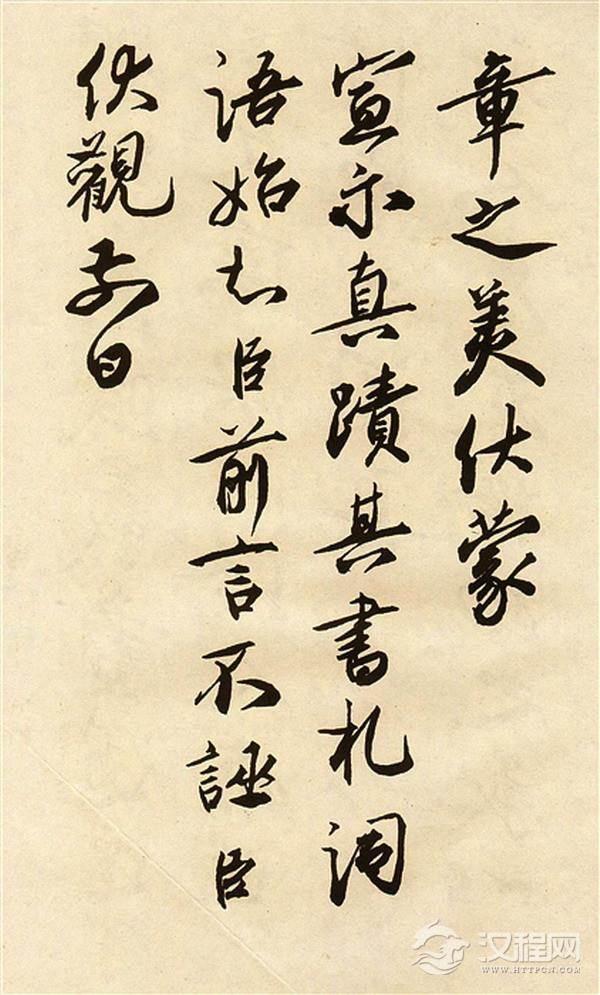 章之美伏蒙
宣示真蹟其書札詞
語始知臣前言不誣臣
伏觀前日
汉程网
WWW.HTTPCN.COM